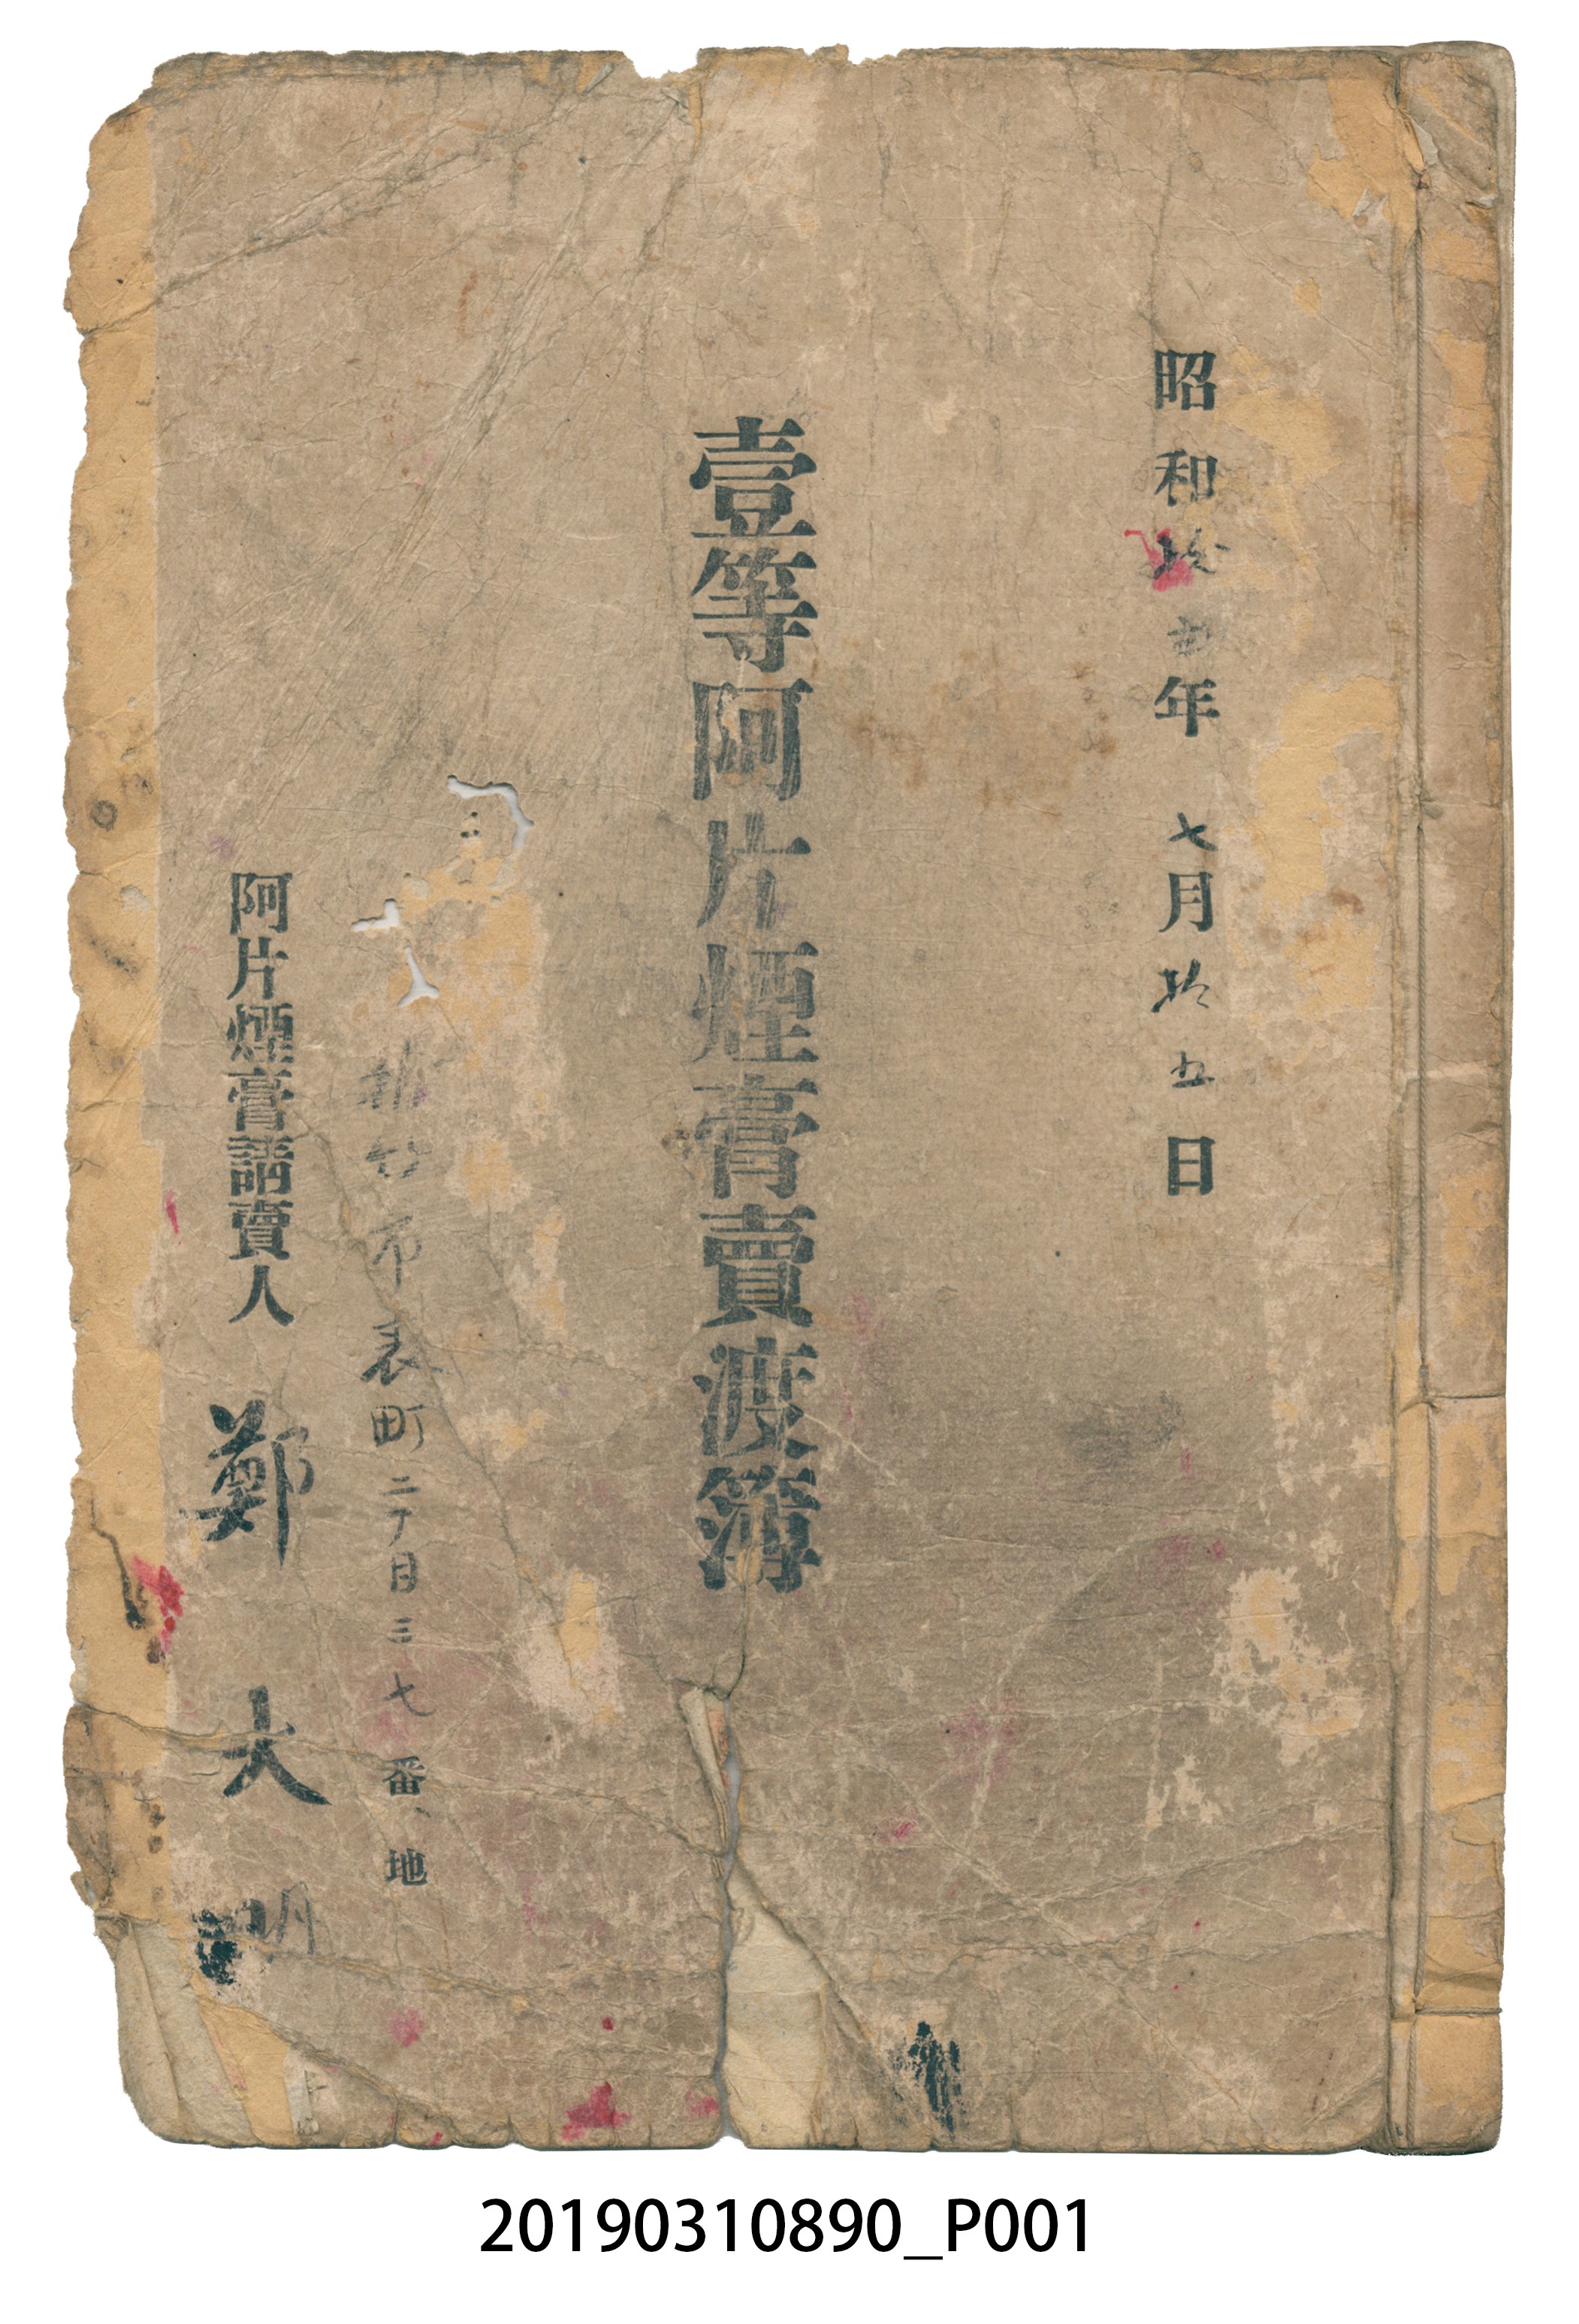 昭和拾年七月拾五日
壹等阿片煙膏賣渡簿
新竹市表町二丁目三七番地
阿片煙膏請賣人 鄭大明
20190310890_P001